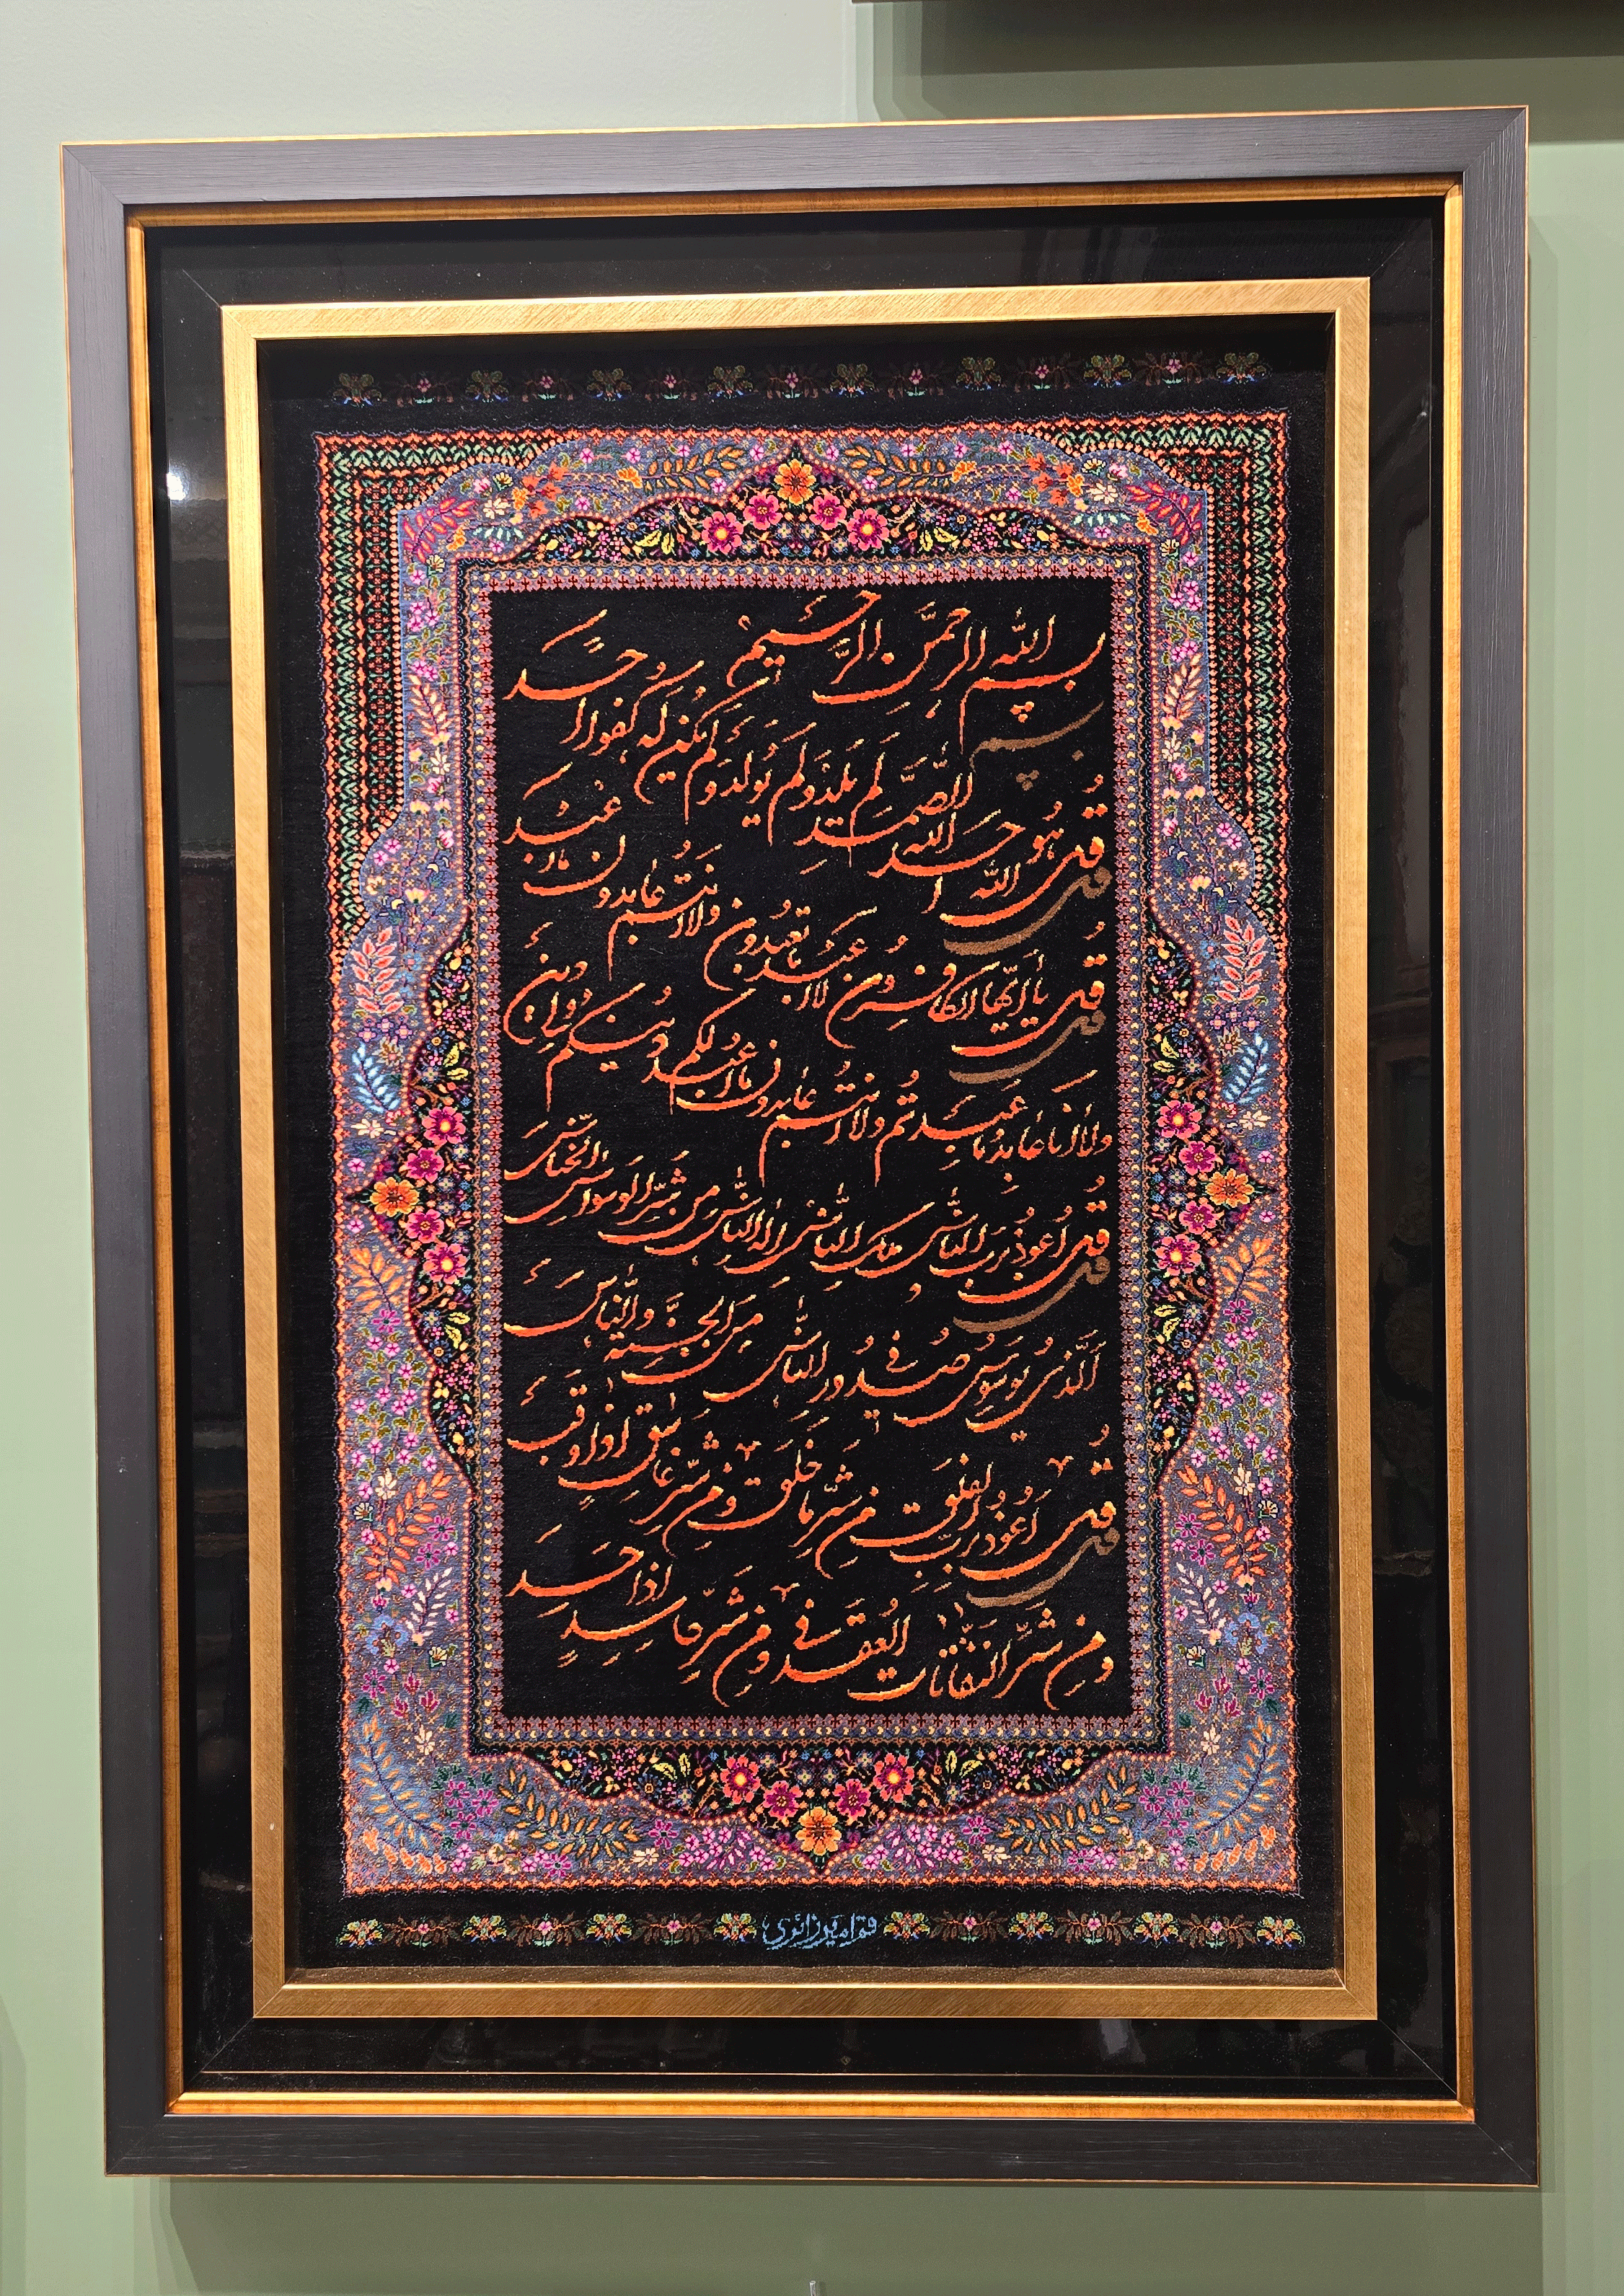 بسم الله الرحمن الرحیم
قل هو الله احد الله الصمد لم یلد ولم یولد ولم یکن له کفوا احد
قل یا ایها الکافرون لا اعبد ما تعبدون ولا انتم عابدون ما اعبد
ولا انا عابد ما عبدتم ولا انتم عابدون ما اعبد لکم دینکم ولی دین
قل اعوذ برب الناس ملک الناس اله الناس من شر الوسواس الخناس
الذی یوسوس فی صدور الناس من الجنة والناس
قل اعوذ برب الفلق من شر ما خلق ومن شر غاسق اذا وقب
ومن شر النفاثات فی العقد ومن شر حاسد اذا حسد
قم امیر زائری